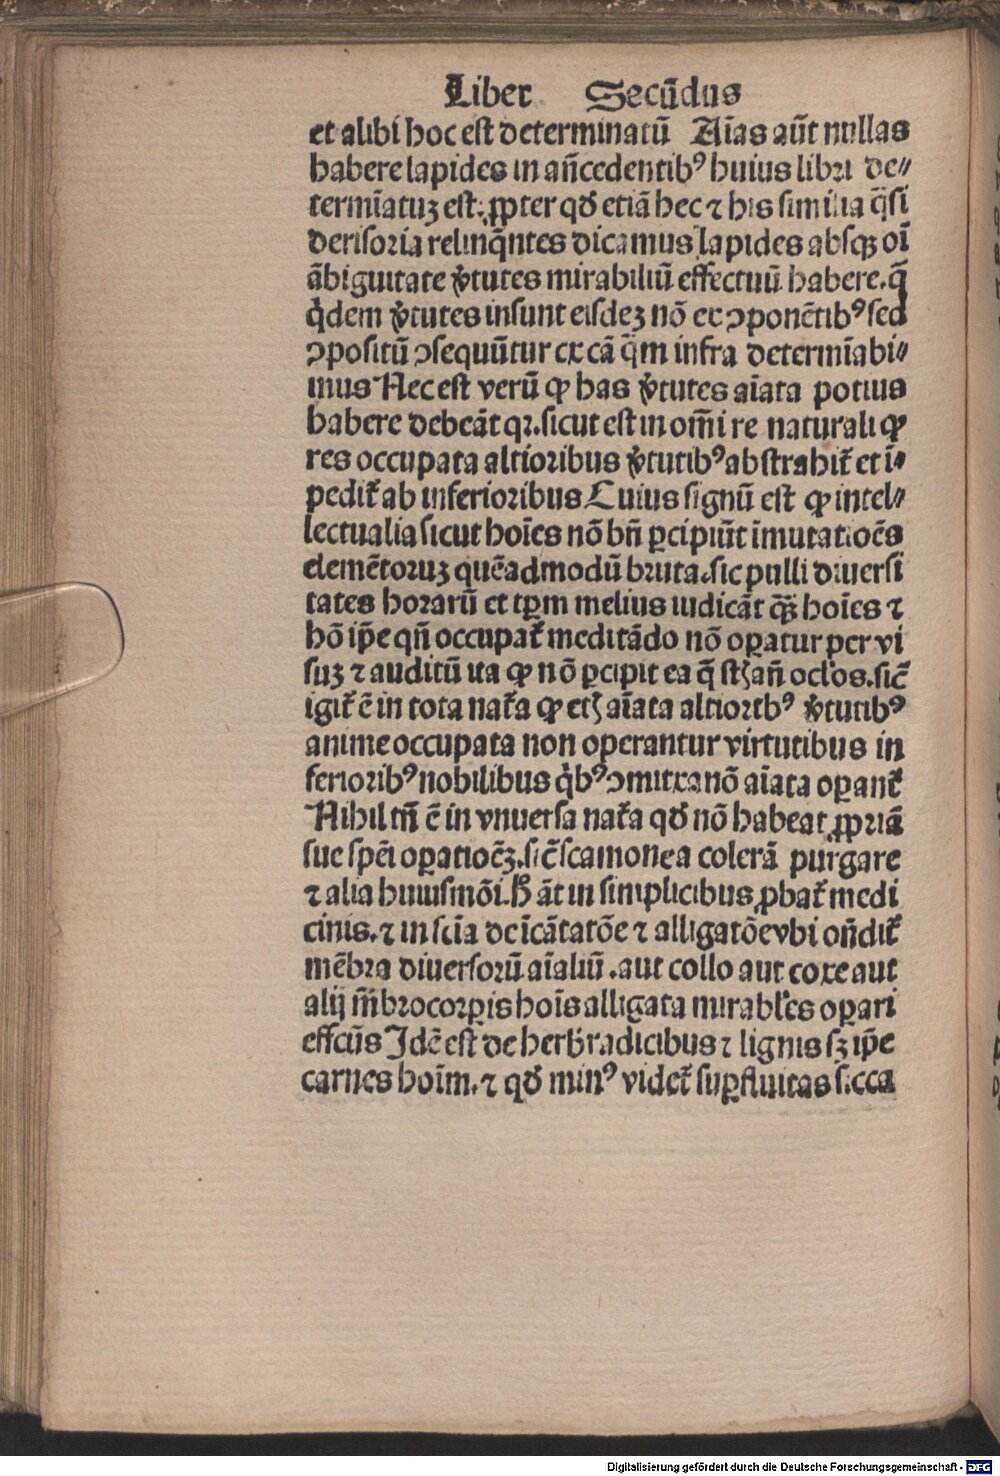 Liber Secūdus
et alibi hoc est determinatū Aīas aūt nullas
habere lapides in añcedentibꝰ huius libri de⸗
termīatuꝫ est. ꝓpter qđ etiā hec ⁊ his similia q̄si
derisoria relinq̄ntes dicamus lapides absqꝫ oī
ābiguitate v̓tutes mirabiliū effectuū habere. q̄
q̇dem v̓tutes insunt eisdeꝫ nō ex ꝯponētibꝰ sed
ꝯpositū ꝯsequūtur ex cā q̄m infra determīabi⸗
mus Nec est verū ꝙ has v̓tutes aīata potius
habere debeāt qꝛ. sicut est in om̄i re naturali ꝙ
res occupata altioribus v̓tutibꝰ abstrahit̄ et ī⸗
pedit̄ ab inferioribus Cuius signū est ꝙ intel⸗
lectualia sicut hoīes nō bn̄ ꝑcipiūt īmutatiōēs
elemētoruꝫ quēadmodū bruta. sic pulli diuersi
tates horarū et tꝑm melius iudicāt q̄ꝫ hoīes ⁊
hō ip̄e qn̄ occupat̄ meditādo nō oꝑatur per vi
suꝫ ⁊ auditū ita ꝙ nō ꝑcipit ea q̄ sꝫ añ ocl̓os. sic̄
igit̄ ē in tota nat̄a ꝙ etꝫ aīata altioribꝰ v̓tutibꝰ
anime occupata non operantur virtutibus in
ferioribꝰ nobilibus q̇bꝰ ꝯmixta nō aīata oꝑant̄
Nihil tn̄ ē in vniuersa nat̄a qđ nō habeat ꝓpriā
sue spēi oꝑatiōēꝫ. sic̄ scamonea colerā purgare
⁊ alia huiusmōi. H̄ āt in simplicibus ꝓbat̄ medi
cinis. ⁊ in scīa de īcātatōe ⁊ alligatōe vbi oñdit̄
mēbra diuersorū aīaliū. aut collo aut coxe aut
alij m̄bro corꝑis hoīs alligata mirabl̓es oꝑari
effc̄us Jdē est de herb̓ radicibus ⁊ lignis sꝫ ip̄e
carnes hoīm. ⁊ qđ minꝰ videt̄ suꝑfluitas sicca